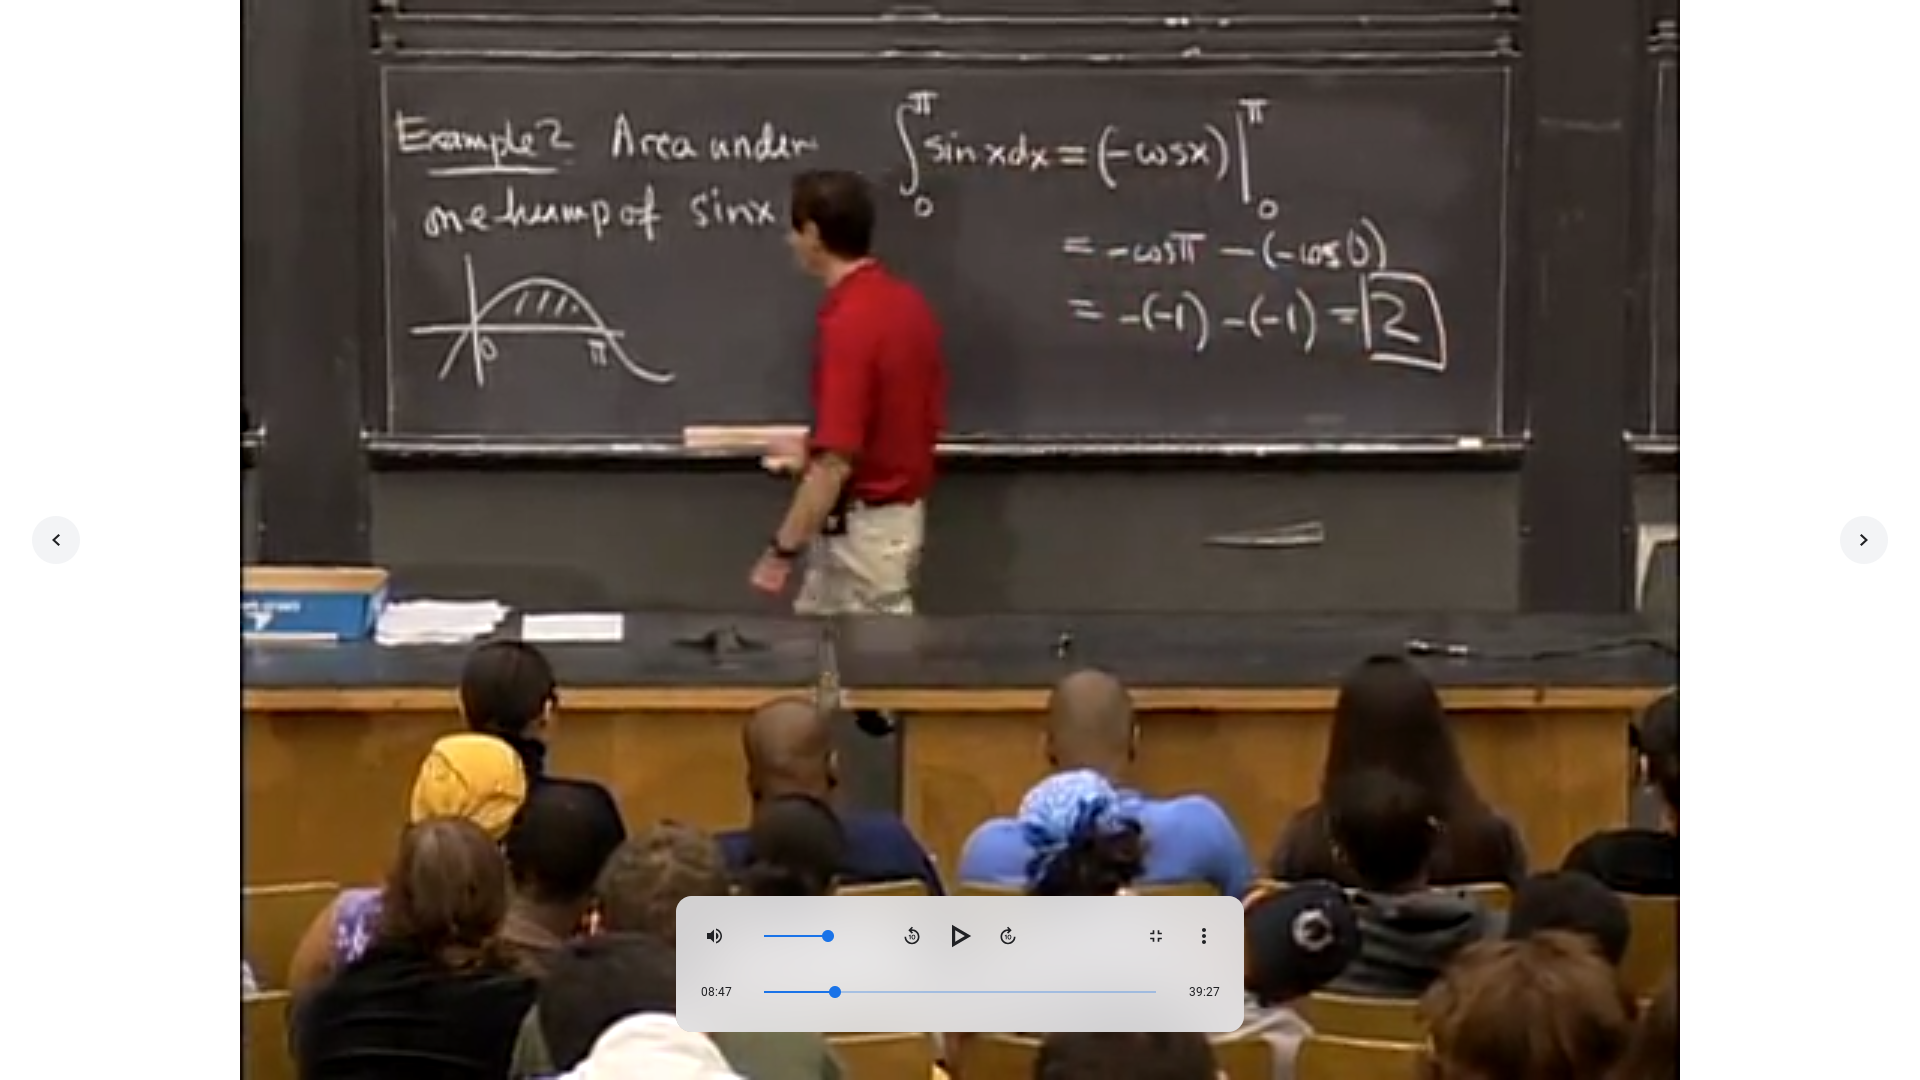 Example 2 Area under
one hump of sinx
0 π
∫₀^π sin x dx = (-cosx)|₀^π
= -cosπ - (-cos0)
= -(-1) - (-1) = 2
10
10
08:47
39:27